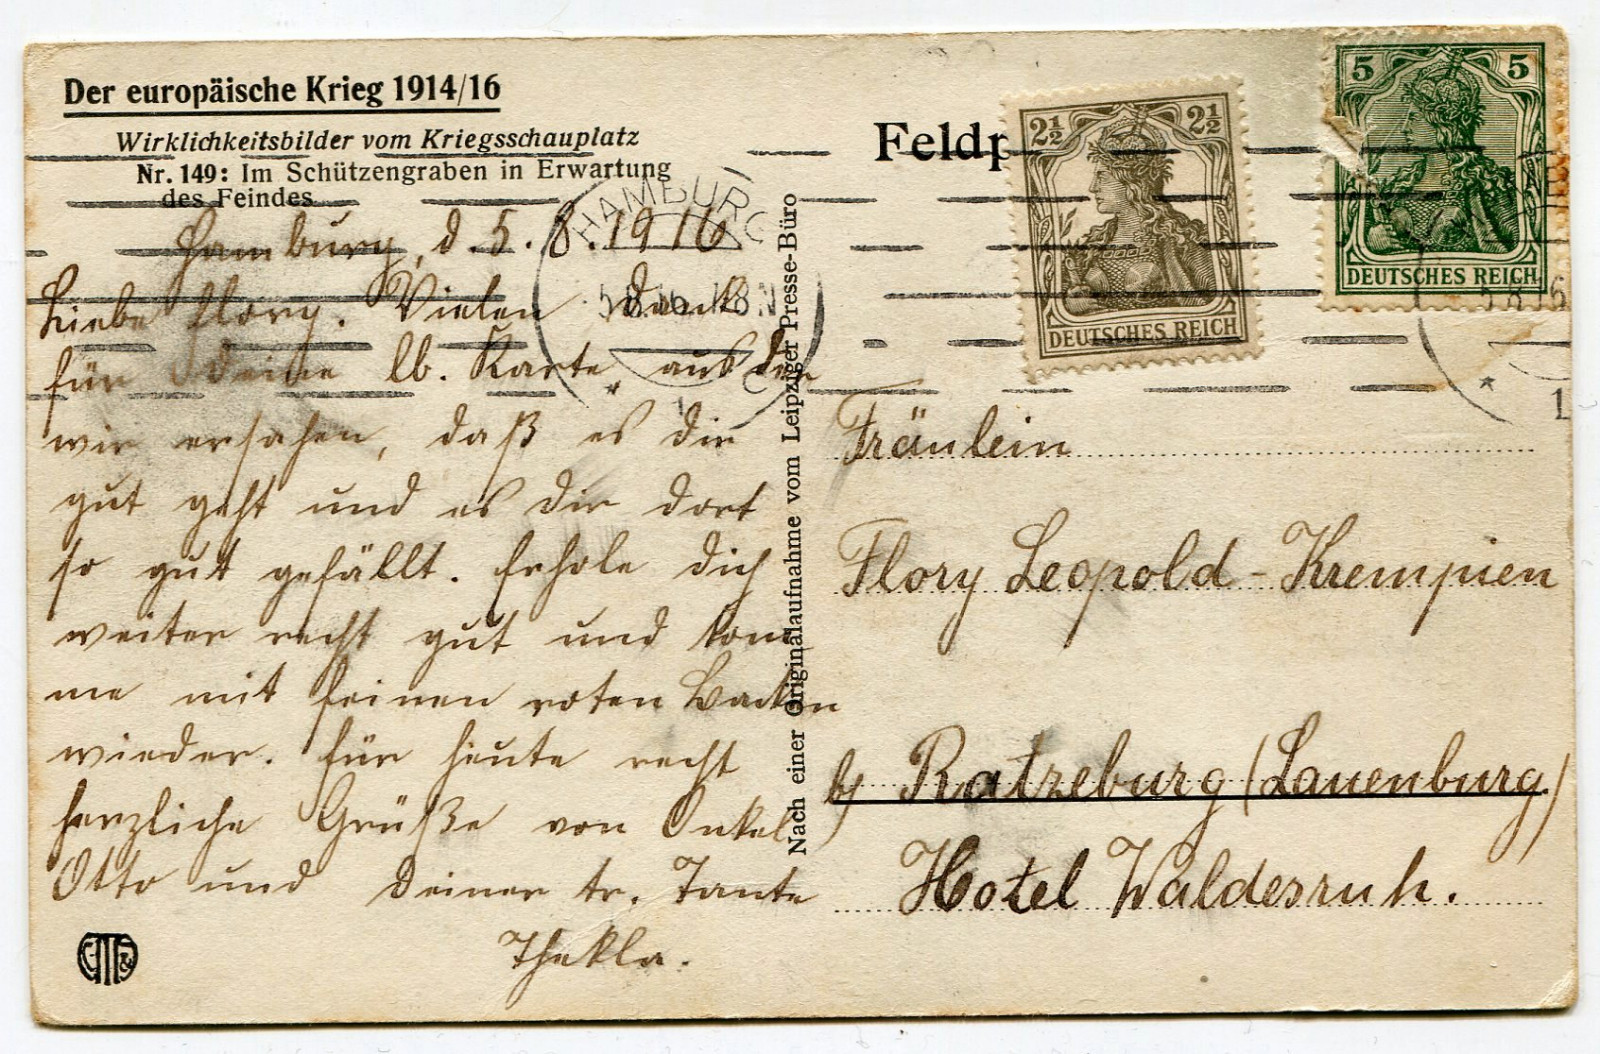 Der europäische Krieg 1914/16
Wirklichkeitsbilder vom Kriegsschauplatz
Nr. 149: Im Schützengraben in Erwartung
des Feindes
Hamburg, d. 5. 8. 1916
Liebe Flory. Vielen Dank
für Deine lb. Karte aus der
wir ersahen, daß es dir
gut geht und es dir dort
so gut gefällt. Erhole dich
weiter recht gut und kom
me mit feinen roten Backen
wieder. Für heute recht
herzliche Grüße von Onkel
Otto und Deiner tr. Tante
Thekla.
Nach einer Originalaufnahme vom Leipziger Presse-Büro
Feldp
2½ 2½
DEUTSCHES REICH
5 5
DEUTSCHES REICH
HAMBURG
5.8.16. 7-8 N
Fräulein
Flory Leopold-Krempien
b/ Ratzeburg (Lauenburg)
Hotel Waldesruh.